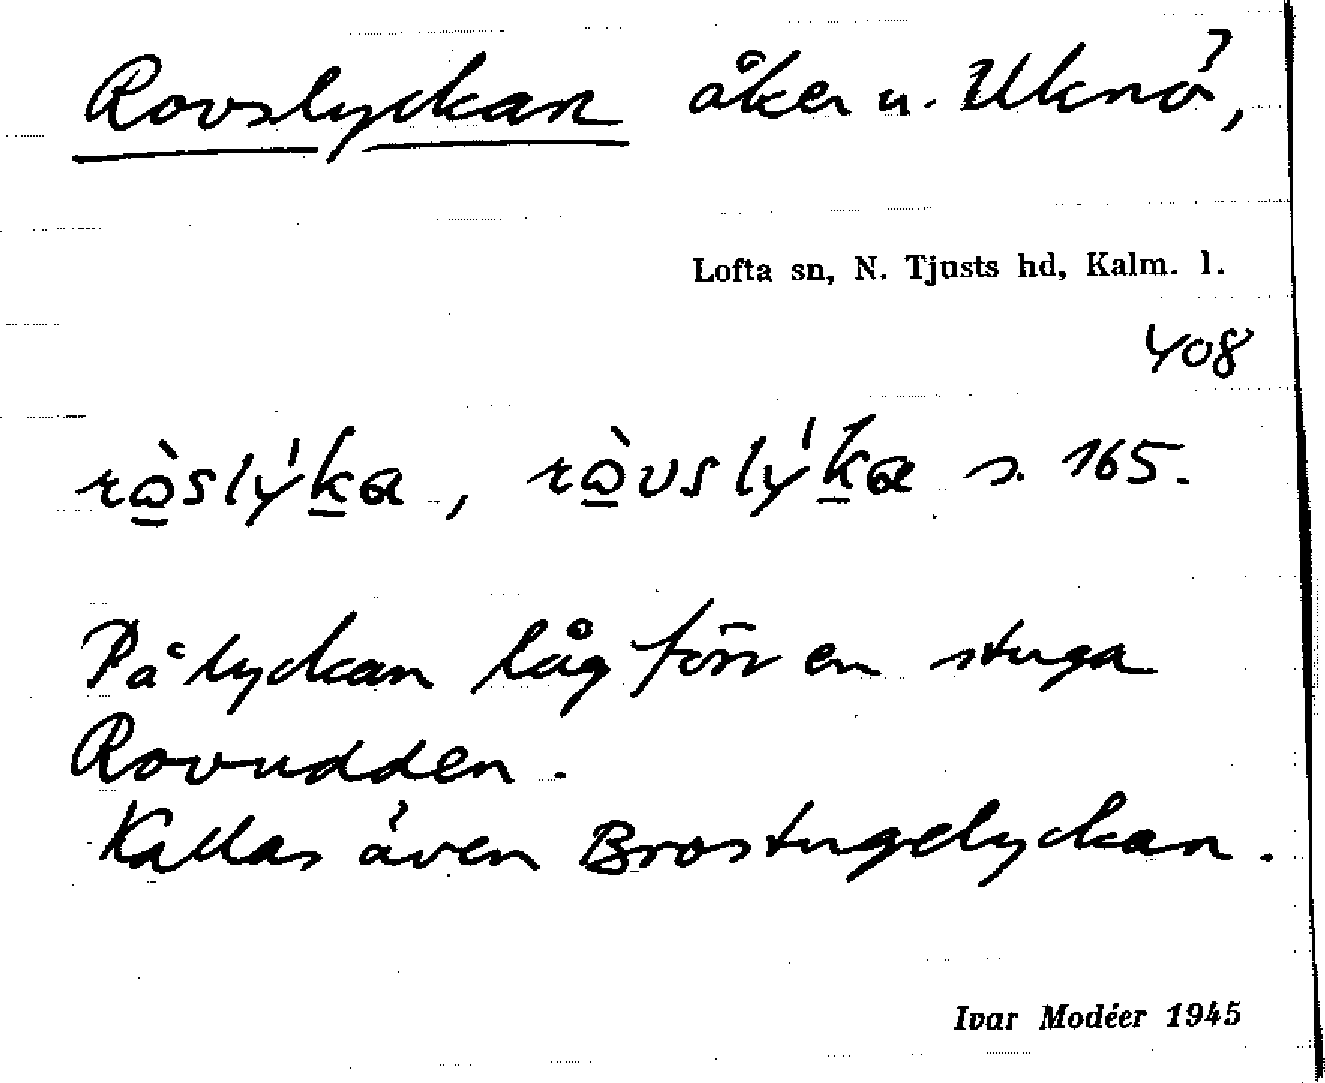 Rovslyckan åker u. Uknö,
Lofta sn, N. Tjusts hd, Kalm. l.
408
rò̱slýḵa, rò̱vslýḵa s. 165.
På lyckan låg förr en stuga
Rovudden.
Kallas även Brostugelyckan.
Ivar Modéer 1945